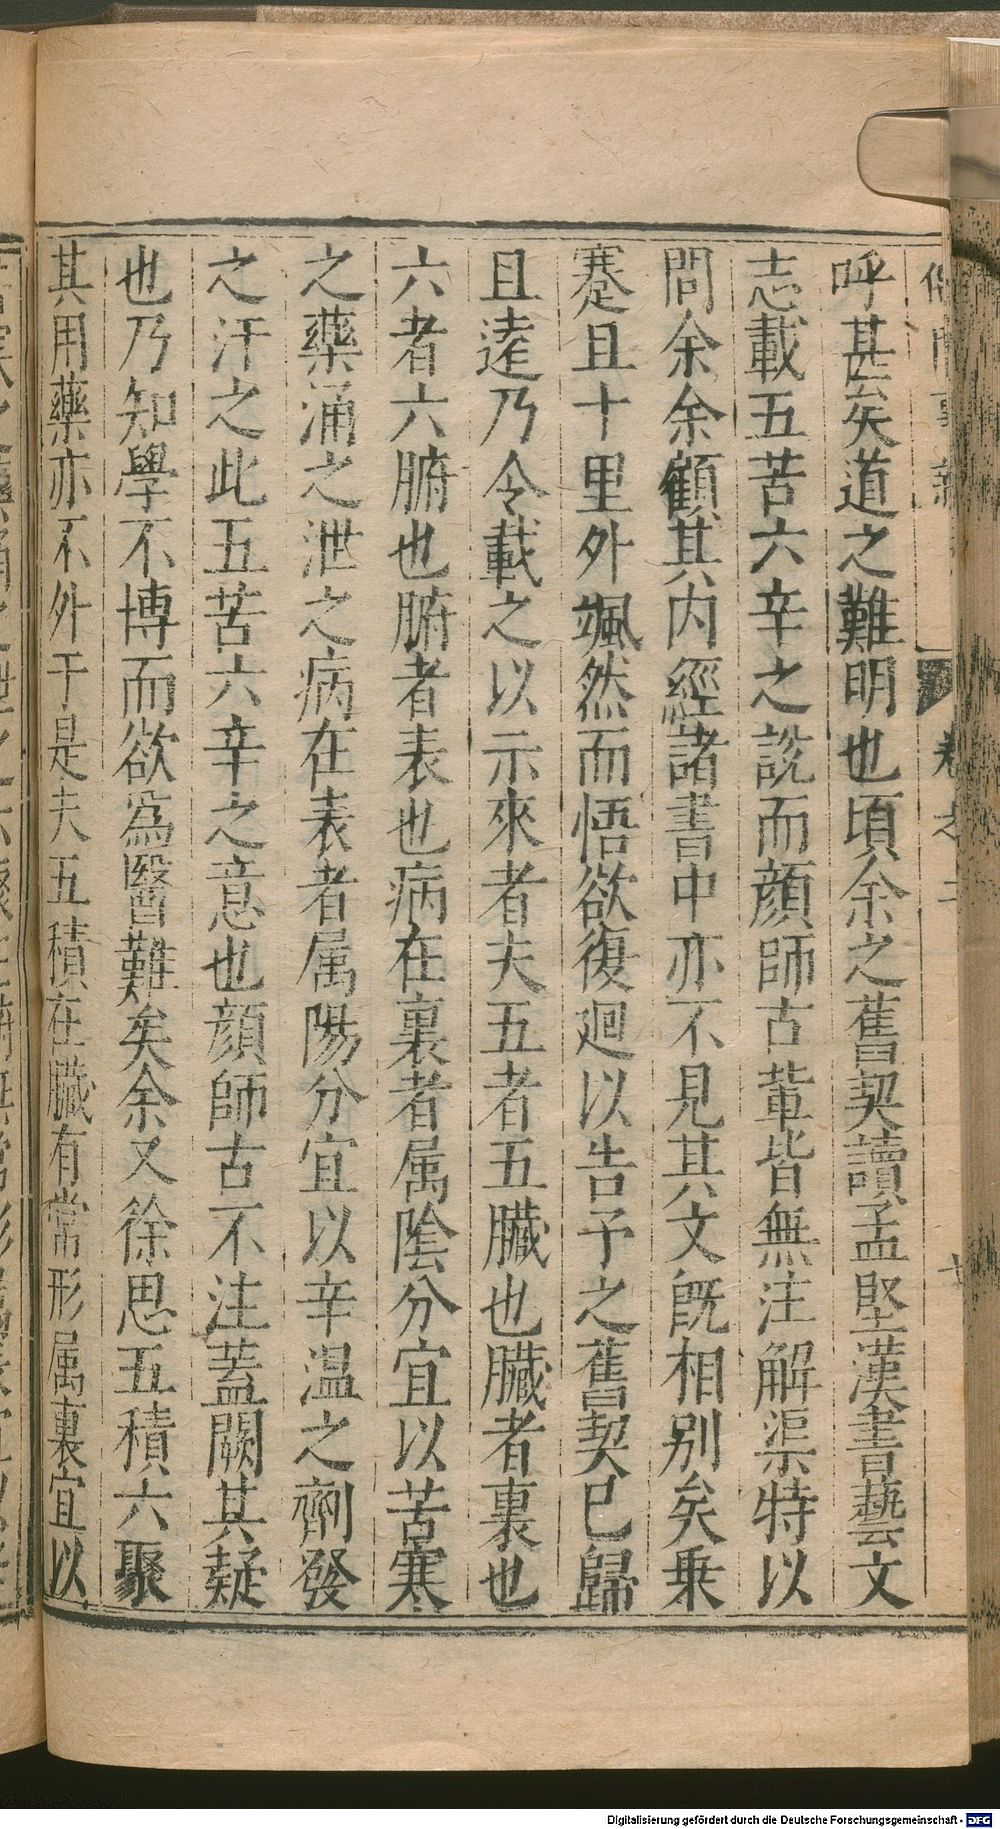 儒門事親 卷之二
呼甚矣道之難明也頃余之舊契讀孟堅漢書藝文
志載五苦六辛之說而顔師古輩皆無注解渠特以
問余余顧其内經諸書中亦不見其文旣相別矣乗
蹇且十里外颯然而悟欲復迴以告予之舊契已歸
且逺乃令載之以示來者夫五者五臓也臓者裏也
六者六腑也腑者表也病在裏者属隂分宜以苦寒
之藥涌之泄之病在表者属陽分宜以辛温之劑發
之汗之此五苦六辛之意也顔師古不注蓋闕其疑
也乃知學不博而欲為醫難矣余又徐思五積六聚
其用藥亦不外于是夫五積在臓有常形属裏宜以
Digitalisierung gefördert durch die Deutsche Forschungsgemeinschaft - DFG